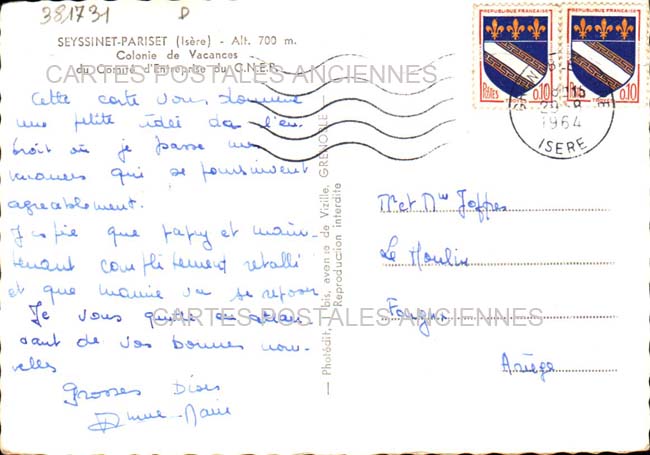 381731 D
SEYSSINET-PARISET (Isère) - Alt. 700 m.
Colonie de Vacances
du Comité d'Entreprise du C.N.E.P.
CARTES POSTALES ANCIENNES
Cette carte vous donne
une petite idée de l'en-
droit où je passe mes
vacances qui se poursuivent
agréablement.
J'espère que papy est main-
tenant complètement rétabli
et que mamie va se reposer
Je vous quitte en
de vos bonnes nou-
velles
Grosses Bises
Anne-Marie
CARTES POSTALES ANCIENNES
— Photédit, bis, avenue de Vizille, GRENOBLE —
Reproduction interdite
REPUBLIQUE FRANÇAISE
TROYES
POSTES 0,10
REPUBLIQUE FRANÇAISE
TROYES
0,10
29-8
1964
ISERE
Mr et Mme Joffres
Le Moulin
Ariège